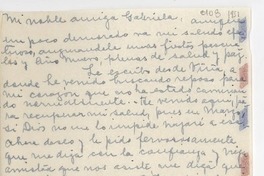 Mi noble amiga Gabriela: aunque
un poco demorado va mi saludo
augurandole unas fiestas
y Año Nuevo plenas de salud y paz.
Le escribo desde Viña, a
donde he venido buscando reposo para
mi corazón que no ha estado caminan
do normalmente. He venido aqui
recuperar mi salud, pues en
si Dios no lo impide
ahora deseo y le pido fervorosamente
que me diga con la confianza y
amistad que nos existe me diga que